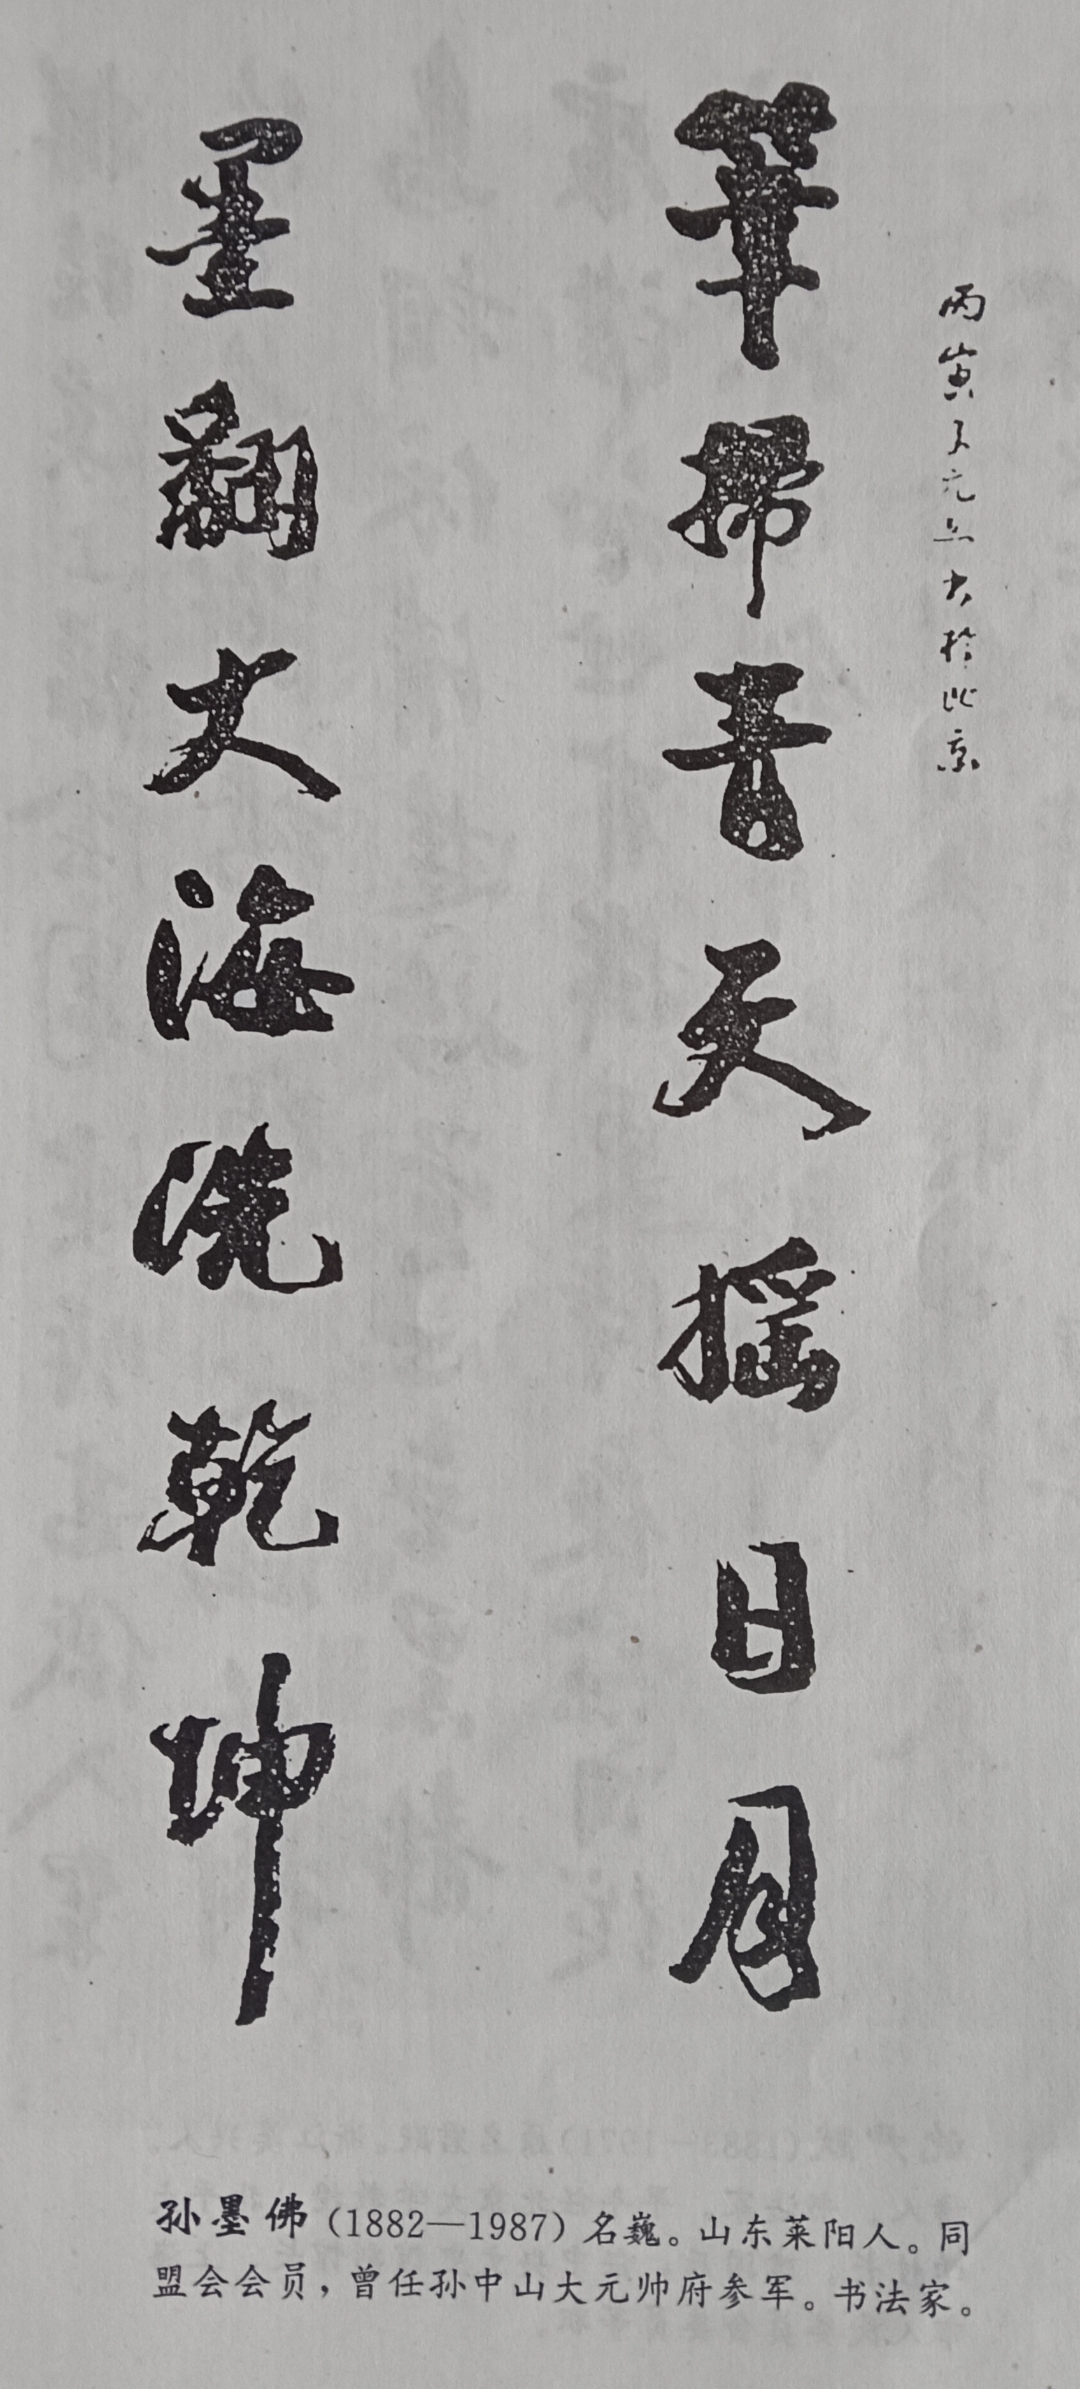 丙寅 元旦 於北京
筆掃青天摇日月
墨翻大海洗乾坤
孙墨佛（1882—1987）名巍。山东莱阳人。同
盟会会员，曾任孙中山大元帅府参军。书法家。